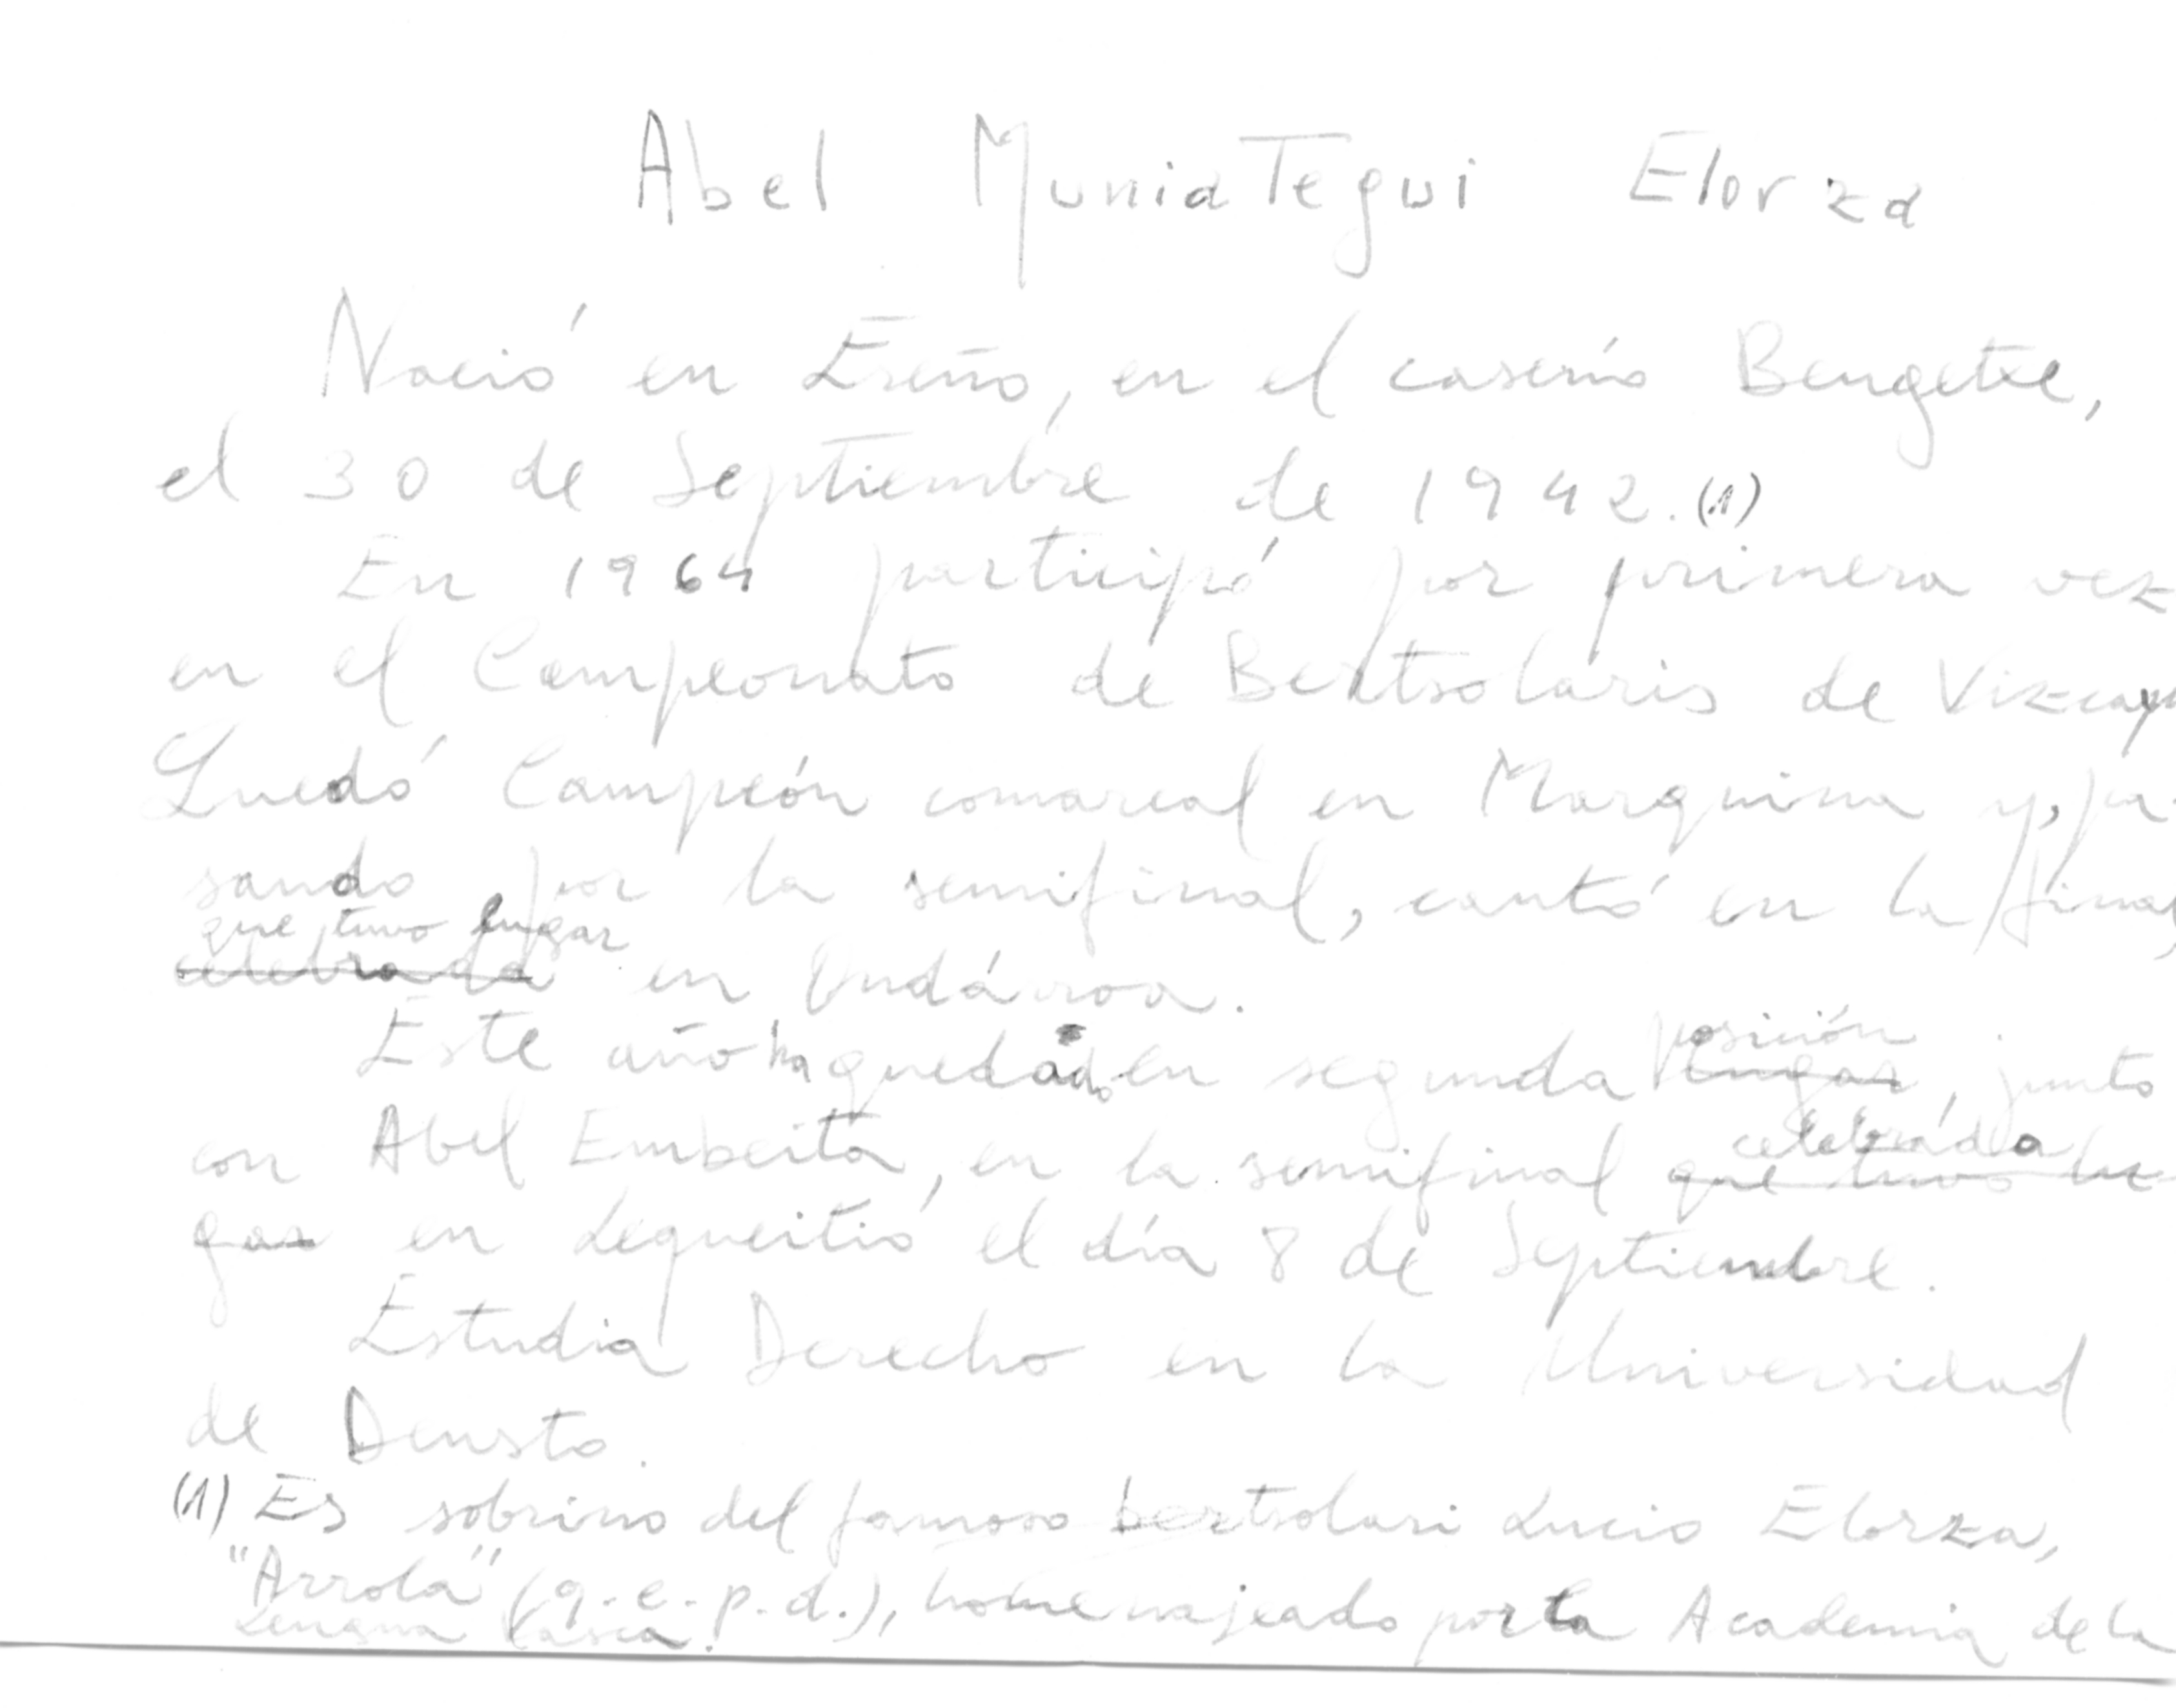 Abel Muniategui Elorza
Nació en Ereño, en el caserío Bengetxe,
el 30 de Septiembre de 1942. (1)
En 1964 participó por primera vez
en el Campeonato de Bertsolaris de Vizcaya
Quedó Campeón comarcal en Marquina y, pa-
sando por la semifinal, cantó en la final,
que tuvo lugar
celebrada en Ondárroa.
Este año ha quedado en segunda posición
lugar, junto
con Abel Enbeita, en la semifinal celebrada
que tuvo lu-
gar en Lequeitio el día 8 de Septiembre.
Estudia Derecho en la Universidad
de Deusto.
(1) Es sobrino del famoso bertsolari Lucio Elorza,
"Arrola" (q.e.p.d.), homenajeado por la Academia de la
Lengua Vasca.